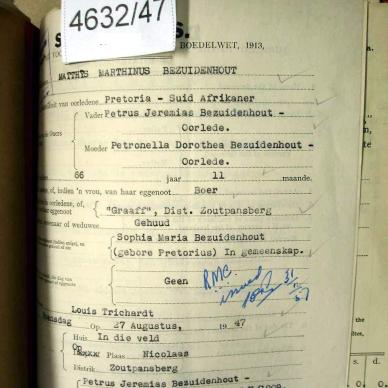 4632/47
S
S.
BOEDELWET, 1913,
MATTHYS MARTHINUS BEZUIDENHOUT
van oorledene Pretoria - Suid Afrikaner
Vader Petrus Jeremias Bezuidenhout -
Oorlede.
Moeder Petronella Dorothea Bezuidenhout -
Oorlede.
66 jaar 11 maande.
of, indien 'n vrou, van haar eggenoot Boer
oorledene, of,
haar eggenoot "Graaff", Dist. Zoutpansberg
wewenaar of weduwee Gehuud
Sophia Maria Bezuidenhout
(gebore Pretorius) In gemeenskap.
Geen
RMC.
issued
Louis Trichardt
Op 27 Augustus, 1947
Huis In die veld
Op
Plaas Nicolaas
Distrik Zoutpansberg
Petrus Jeremias Bezuidenhout
s. d.